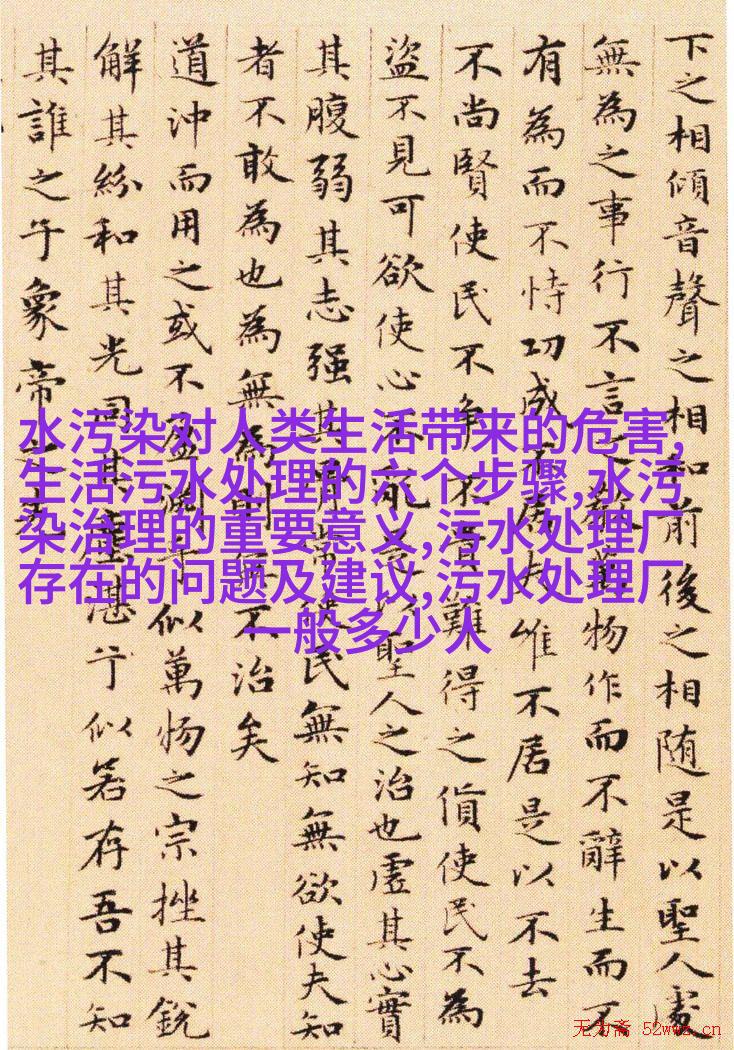 下之相傾音聲之相和前後之相随是以聖人處
無為之事行不言之教萬物作而不辭生而不
有為而不恃功成不居夫唯不居是以不去
不尚賢使民不争不貴難得之貨使民不為
盜不見可欲使心不亂是以聖人之治也虛其心實
其腹弱其志强其骨常使民無知無欲使夫知
者不敢為也為無為則無不治矣
道沖而用之或不盈淵乎似萬物之宗挫其銳
解其紛和其光同其塵湛兮似若存吾不知
其誰之子象帝之先
水污染对人类生活带来的危害,
生活污水处理的六个步骤,水污
染治理的重要意义,污水处理厂
存在的问题及建议,污水处理厂
一般多少人
无为斋 52wwz.cn